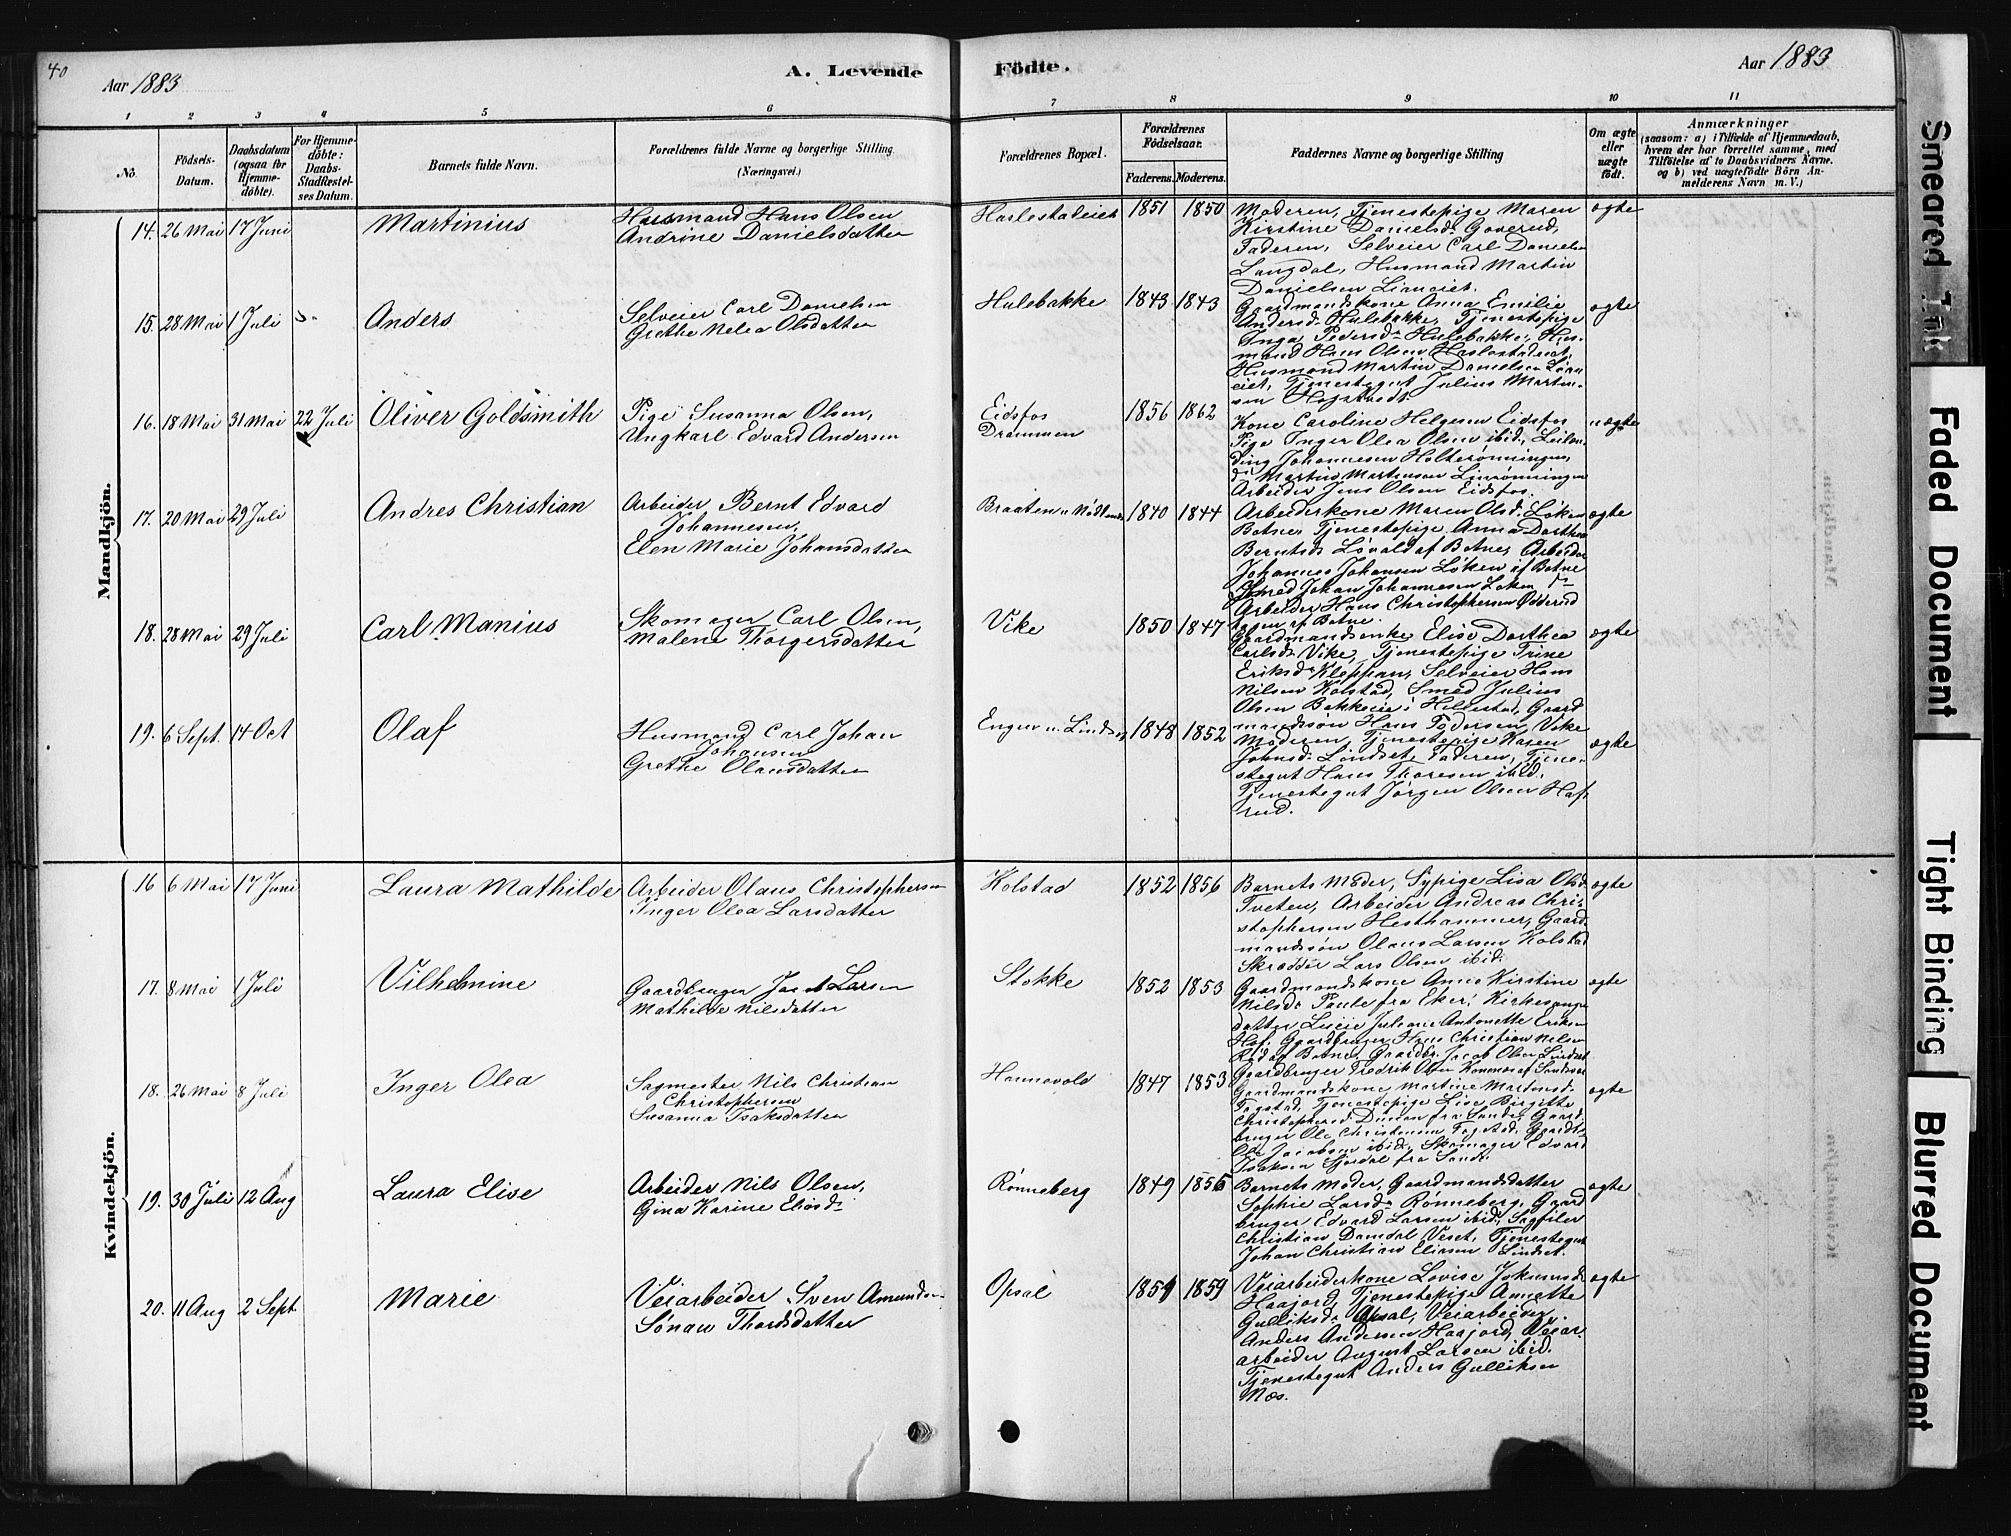 40
Aar 1883
A. Levende
Födte.
Aar 1883
1 2 3 4 5 6 7 8 9 10 11
No.
Födsels-Datum.
Daabsdatum (ogsaa for Hjemme-döbte).
For Hjemme-döbte: Daabs-Stadfæstel-ses Datum.
Barnets fulde Navn.
Forældrenes fulde Navne og borgerlige Stilling
(Næringsvei.)
Forældrenes Bopæl.
Forældrenes Födselsaar.
Faderens. Moderens.
Faddernes Navne og borgerlige Stilling
Om ægte eller uægte födt.
Anmærkninger
(saasom: a) i Tilfælde af Hjemmedaab, hvem der har forrettet samme, med Tilföielse af to Daabsvidners Navne. og b) ved uægtefödte Börn An-melderens Navn m. V.)
Mandkjön.
14. 26 Mai 17 Juni Martinius
Husmand Hans Olsen
Andrine Danielsdatter
Haslestadeiet 1851 1850
Moderen, Tjenestepige Maren
Kirstine Danielsd. Goverud,
Faderen, Selveier Carl Danielsen
Langdal, Husmand Martin
Danielsen Lianeiet.
ægte
15. 28 Mai 1 Juli Anders
Selveier Carl Danielsen
Grethe Nelea Olsdatter
Hulebakke 1843 1843
Gaardmandskone Anna Emilie
Andersd. Hulebakke, Tjenestepige
Inga Pedersd. Hulebakke, Hus-
mand Hans Olsen Haslestadeiet,
Husmand Martin Danielsen Lian-
eiet, Tjenestegut Julius Martin-
sen
ægte
16. 18 Mai 31 Mai 22 Juli Oliver Goldsmith
Pige Susanna Olsen,
Ungkarl Edvard Andersen
Eidsfos
Drammen
1856 1862
Kone Caroline Helgesen Eidsfos
Pige Inger Olea Olsen ibid,
Johannesen Holterønningen,
Martin Martinsen
Arbeider Jens Olsen Eidsfos.
uægte
17. 20 Mai 29 Juli Andres Christian
Arbeider Bernt Edvard
Johannesen,
Elen Marie Johansdatter
Braaten 1840 1844
Arbeiderkone Maren Olsd. Løken
Botne, Tjenestepige Anna Dorthea
Berntsd. af Botne, Arbeider
Johannes Johansen Løken af Botne
Smed Johan Johannesen Løken
Arbeider Hans Christophersen
af Botne.
ægte
18. 28 Mai 29 Juli Carl Manius
Skomager Carl Olsen,
Malene Thorgersdatter
Vike 1850 1847
Gaardmandsenke Elise Dorthea
Carlsd. Vike, Tjenestepige Trine
Eriksd. Kleppan, Selveier Hans
Nilsen Kolstad, Smed Julius
Olsen Bakkeeie i Hillestad, Gaard-
mandssøn Hans Pedersen, Vike
ægte
19. 6 Sept. 14 Oct Olaf
Husmand Carl Johan
Johansen
Grethe Olausdatter
1848 1852
Moderen, Tjenestepige Karen
Johnsd. Lindset, Faderen, Tjene-
stegut Hans Thoresen ibid.
Tjenestegut Jørgen Olsen Haf-
rud.
ægte
Kvindekjön.
16 6 Mai 17 Juni Laura Mathilde
Arbeider Olaus Christophersen
Inger Olea Larsdatter
Kolstad 1852 1856
Barnets Moder, Sypige Lisa Olsd.
Tveten, Arbeider Andreas Chri-
stophersen Hesthammer, Gaard-
mandssøn Olaus Larsen Kolstad
Skrædder Lars Olsen ibid.
ægte
17. 8 Mai 1 Juli Vilhelmine
Gaardbruger Jacob Larsen
Mathilde Nilsdatter
Stokke 1852 1853
Gaardmandskone Anne Kirstine
Nilsd. fra Eker, Kirkesanger-
datter Luise Juliane Antonette Eriksen
Hof, Gaardbruger Hans Christian Nilsen
af Botne, Gaardbr. Jacob Olsen Lindset
Gaardbruger Fredrik Olsen af Sandsver
ægte
18. 26 Mai 8 Juli Inger Olea
Sagmester Nils Christian
Christophersen
Susanna Isaksdatter
Hannevold 1847 1853
Gaardmandskone Martine Martinsd.
Fogstad, Tjenestepige Lise Birgitte
Christophersd. fra Sande, Gaard-
bruger Ole Christensen Fogstad, Gaardb.
Ole Jacobsen ibid, Skomager Edvard
Isaksen fra Sande.
ægte
19. 30 Juli 12 Aug Laura Elise
Arbeider Nils Olsen,
Gina Karine Eliasd.
Rønneberg 1849 1856
Barnets Moder, Gaardmandsdatter
Sophie Larsd. Rønneberg, Gaard-
bruger Edvard Larsen ibid, Sagfiler
Christian Damdal Veset, Tjenestegut
Johan Christian Eliasen Lindset.
ægte
20. 11 Aug 2 Sept. Marie
Veiarbeider Sven Amundsen
Sønau Thordsdatter
Opsal 1859 1859
Veiarbeiderkone Lovise
Haajord, Tjenestepige Annette
Gulliksd. Opsal, Veiarbeider
Anders Andersen Haajord, Veiar-
arbeider August Larsen ibid.
Tjenestegut Anders Gulliksen
Mæs.
ægte
Smeared Ink
Faded Document
Tight Binding
Blurred Document